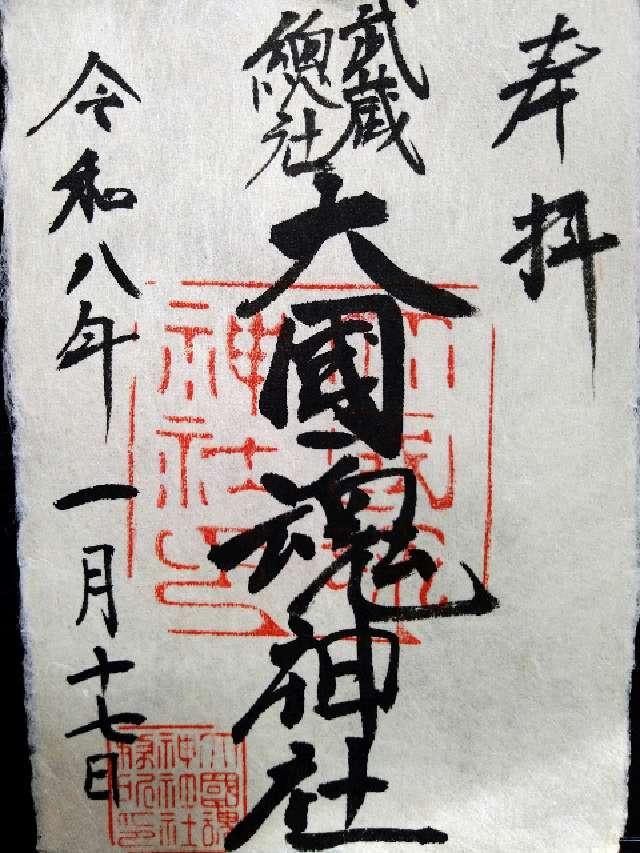 奉拝
武蔵
總社
大國魂神社
令和八年一月十七日
大國魂
神社